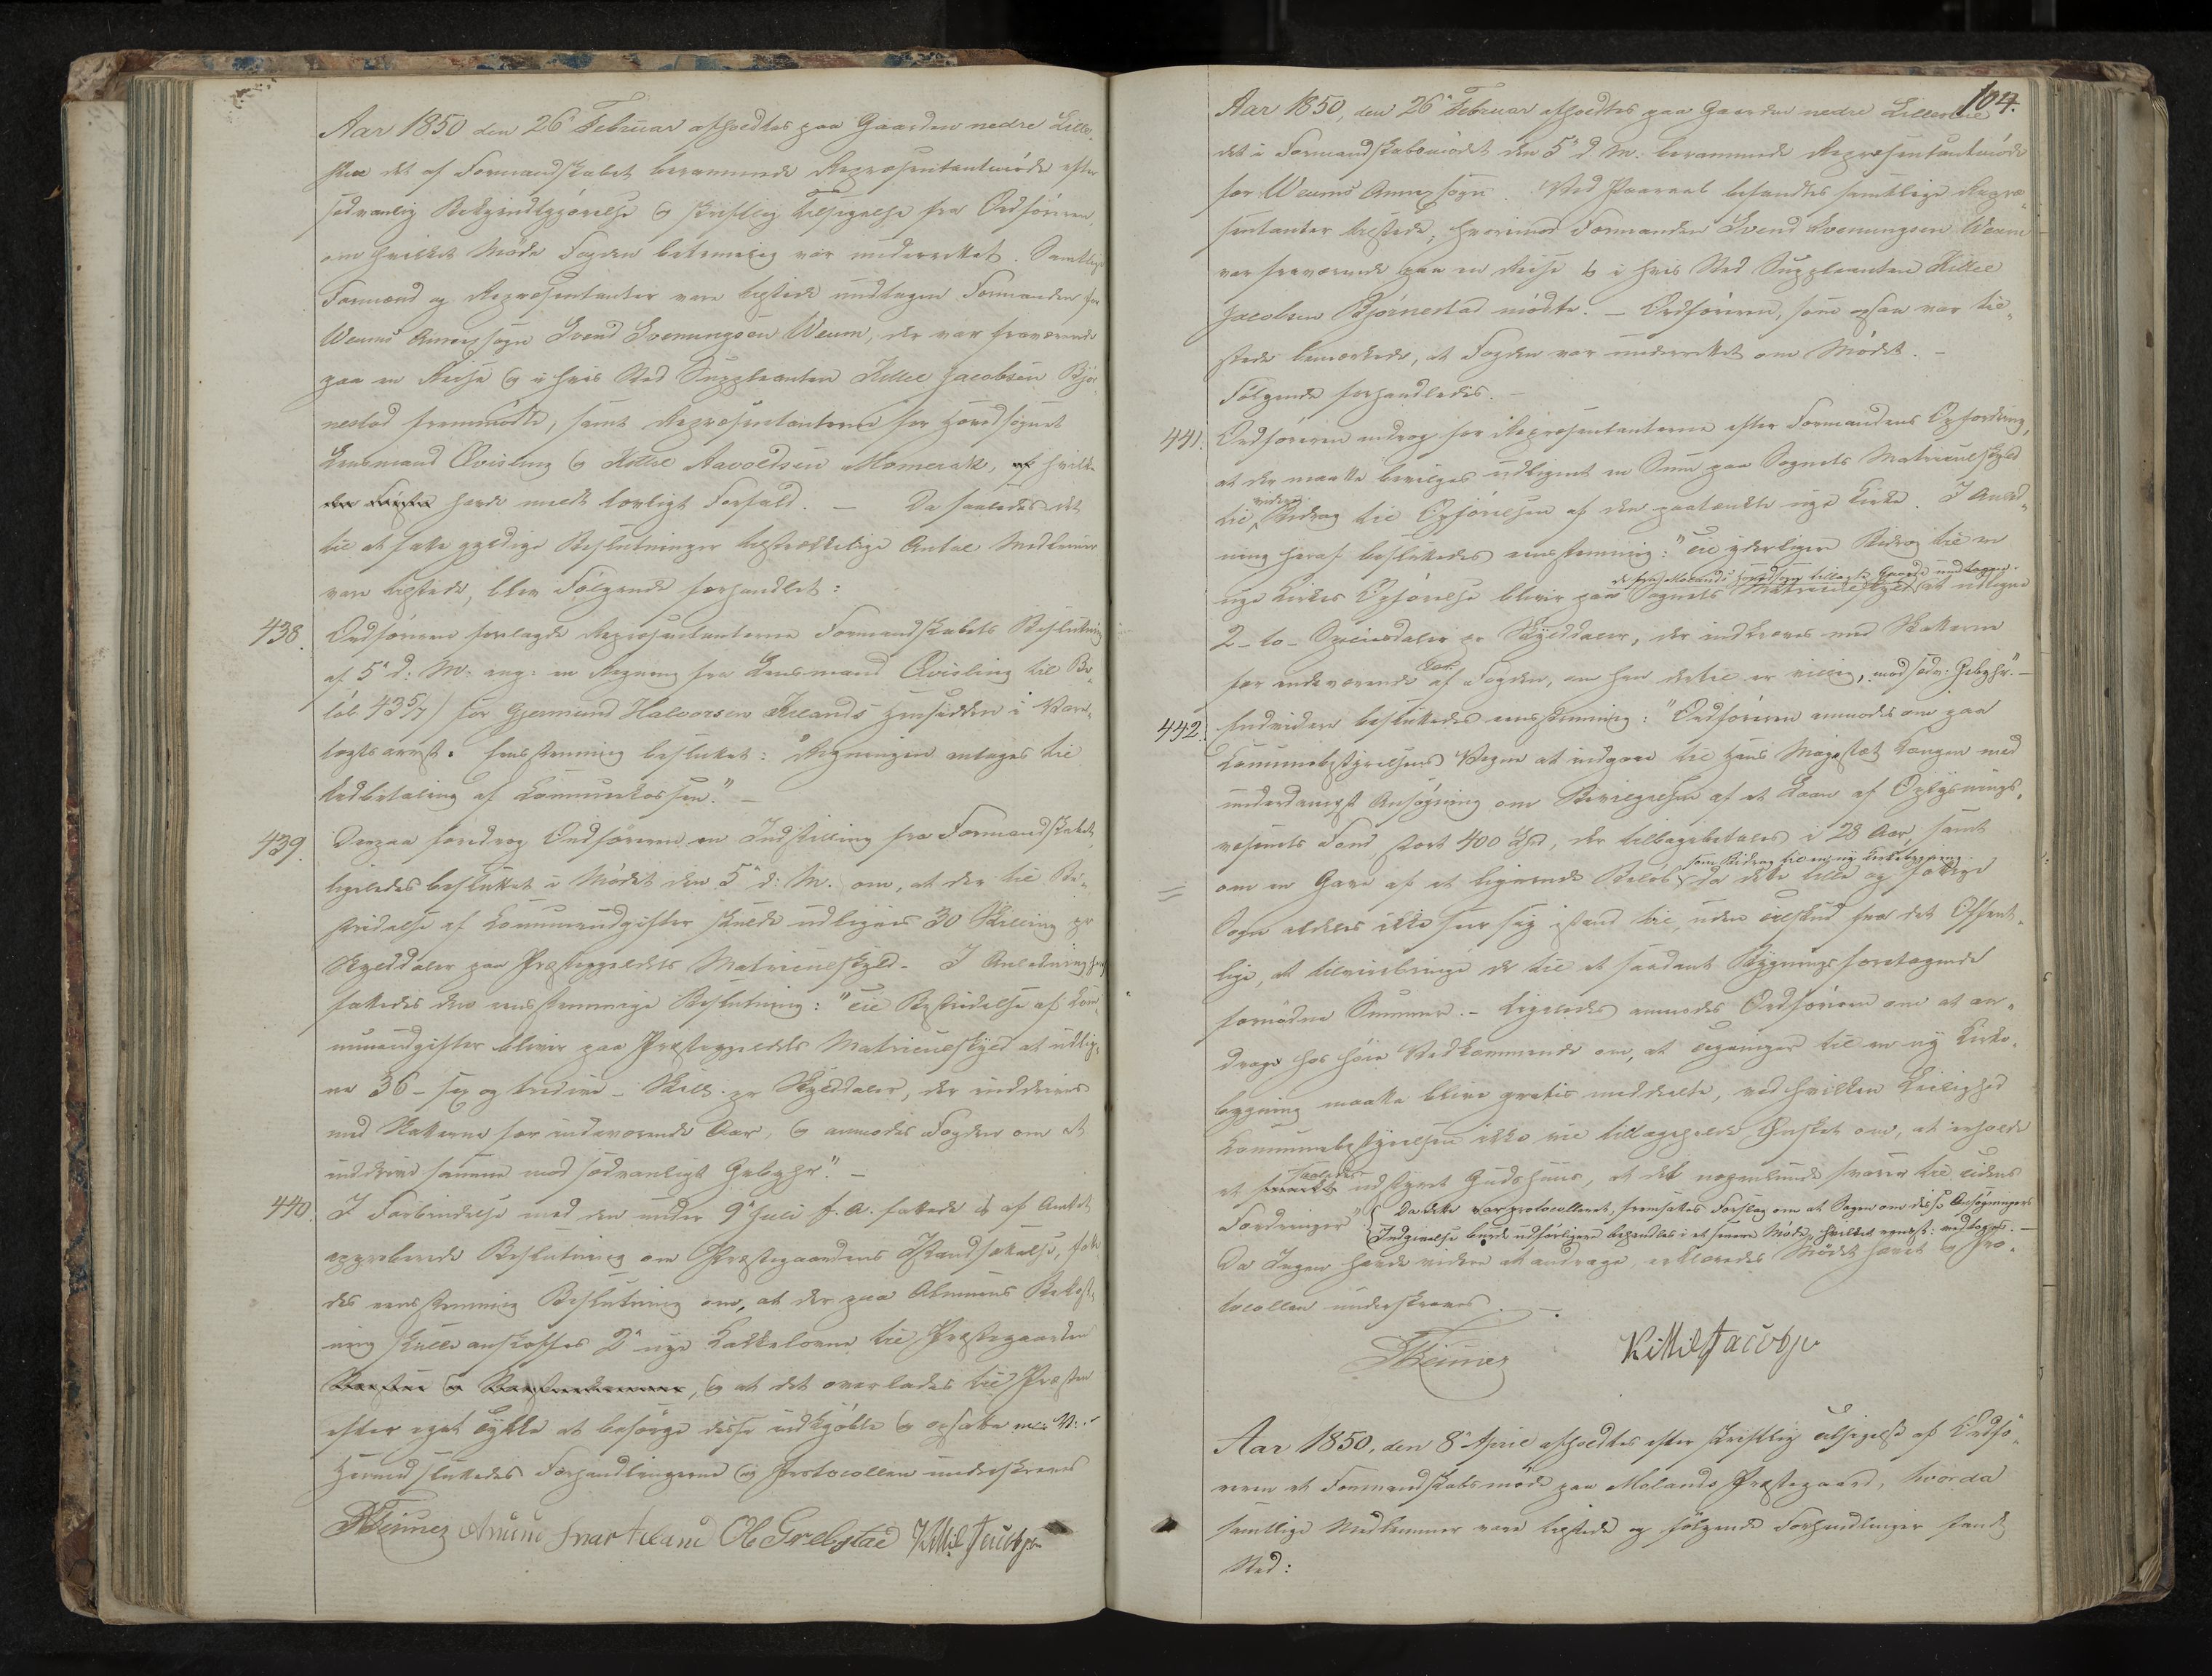 Aar 1850 den 26de Februar afholdtes paa Gaarden nedre Lille-
stue det af Formandskabet berammede Repræsentantmøde efter
sedvanlig Bekjendtgjørelse og skriftlig Tilsigelse fra Ordføreren,
om hvilket Møde Fogden betimelig var underrettet. Samtlige
Formænd og Repræsentanter vare tilstede undtagen Formanden for
Weums Annexsogn Svend Svenungsen Weum, der var fraværende
paa en Reise og i hvis Sted Suppleanten Kittel Jacobsen Bjør-
nestad fremmødte, samt Repræsentanterne for Hovedsognet
Lensmand Qvisling og Kittel Aavoldsen Momrak, af hvilke
den første havde meldt lovligt Forfald. — Da saaledes det
til at fatte gyldige Beslutninger tilstrækkelige Antal Medlemmer
vare tilstede, blev Følgende forhandlet:
438. Ordføreren forelagde Repræsentanterne Formandskabets Beslutning
af 5te d: M: ang: en Regning fra Lensmand Qvisling til Be-
løb 43 5/7 / for Gjermund Halvorsen Kilands Hensidden i Vare-
tægts arrest. Eenstemmig besluttet: "Regningen antages til
Udbetaling af Kommunekassen." —
439. Derpaa foredrog Ordføreren en Indstilling fra Formandskabet,
ligeledes besluttet i Mødet den 5te d: M. om, at der til Be-
stridelse af Kommuneudgifter skulde udlignes 30 Skilling pr
Skylddaler paa Præstegjeldets Matriculskyld. I Anledning heraf
fattedes den eenstemmige Beslutning: "Til Bestridelse af Kom-
muneudgifter bliver paa Præstegjeldets Matriculskyld at udlig-
ne 36 - sex og tredive - Skill. pr Skylddaler, der inddrives
med Skatterne for indeværende Aar, og anmodes Fogden om at
inddrive samme mod sædvanligt Gebyhr". —
440. I Forbindelse med den under 9de Juli f. A. fattede og af Amtet
approberede Beslutning om Præstegaardens Istandsættelse, fatte-
des eenstemmig Beslutning om, at der paa Almuens Bekost-
ning skulle anskaffes 2de nye Kakkelovne til Præstegaarden
, og at det overlades til Præsten
efter eget Tykke at besørge disse indkjøbte og opsatte m: V:
Hermed sluttedes Forhandlingerne og Protocollen underskreves
Amund Ivar Kiland Ole Grelsstad Kittil Jacobsen
104.
Aar 1850, den 26de Februar afholdtes paa Gaarden nedre Lillestue
det i Formandskabsmødet den 5te d. M. berammede Repræsentantmøde
for Weums Annexsogn. Ved Paaraab befandtes samtlige Repræ-
sentanter tilstede, hvorimod Formanden Svend Svenungsen Weum
var fraværende paa en Reise og i hvis Sted Suppleanten Kittel
Jacobsen Bjørnestad mødte. — Ordføreren, som ogsaa var til-
stede bemærkede, at Fogden var underrettet om Mødet. —
Følgende forhandledes. —
441. Ordføreren androg for Repræsentanterne efter Formandens Opfordring,
at der maatte bevilges udlignet en Sum paa Sognets Matriculskyld
til videre Bidrag til Opførelsen af den paatænkte nye Kirke. I Anled-
ning heraf besluttedes eenstemmig: "Til yderligere Bidrag til en
de fra Molands Hovedsogn tillagte Gaarde undtagne
nye Kirkes Opførelse bliver paa Sognets Matriculskyld at udligne
2 - to - Speciesdaler pr Skylddaler, der indkræves med Skatterne
for indeværende Aar af Fogden, om han dertil er villig, mod sedv: Gebyhr". —
442. Endvidere besluttedes eenstemmig: "Ordføreren anmodes om paa
Kommunebestyrelsens Vegne at indgaae til Hans Majestæt Kongen med
underdanigst Ansøgning om Bevilgelsen af et Laan af Oplysnings-
væsenets Fond, stort 400 Spd, der tilbagebetales i 28 Aar, samt
som Bidrag til en ny Kirkebygning
om en Gave af et lignende Beløb da dette lille og fattige
Sogn aldeles ikke seer sig istand til, uden Tilskud fra det Offent-
lige, at tilveiebringe de til et saadant Bygnings foretagende
fornødne Summer. — Ligeledes anmodes Ordføreren om at an-
drage hos høie Vedkommende om, at Tegninger til en ny Kirke-
bygning maatte blive gratis meddeelte, ved hvilken Leilighed
Kommunebestyrelsen ikke vil tilbageholde Ønsket om, at erholde
et saaledes udstyret Gudshuus, at det nogenlunde svarer til Tidens
Fordringer" Da dette var protocolleret, fremsattes Forslag om at Sagen om disse Ansøgningers
Indgivelse burde udførligere behandles i et senere Møde, hvilket eenst: vedtoges. —
Da Ingen havde videre at andrage, erklæredes Mødet hævet og Pro-
tocollen underskreves. —
Kittil Jacobsen
Aar 1850, den 8de April afholdtes efter skriftlig Tilsigelse af Ordfø-
reren et Formandskabsmøde paa Molands Præstegaard, hvorda
samtlige Medlemmer vare tilstede og følgende Forhandlinger fandt
Sted: